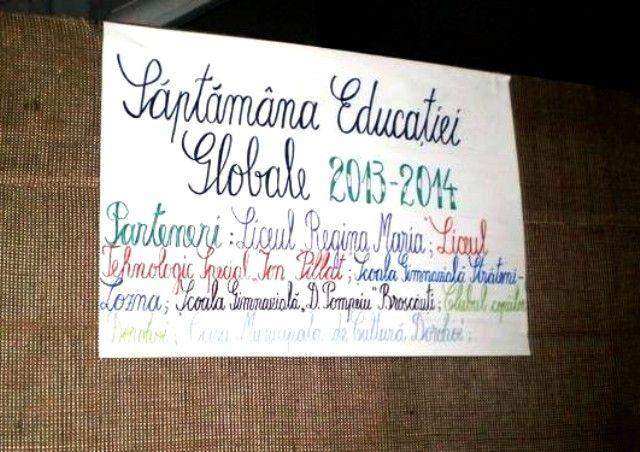 Săptămâna Educației
Globale 2013-2014
Parteneri: Liceul Regina Maria; Liceul
Tehnologic Special „Ion Pillat"; Școala Gimnazială Străteni-
Lozna; Școala Gimnazială „D. Pompeiu" Broscăuți; Clubul copiilor
Dorohoi; Casa Municipală de Cultură Dorohoi;